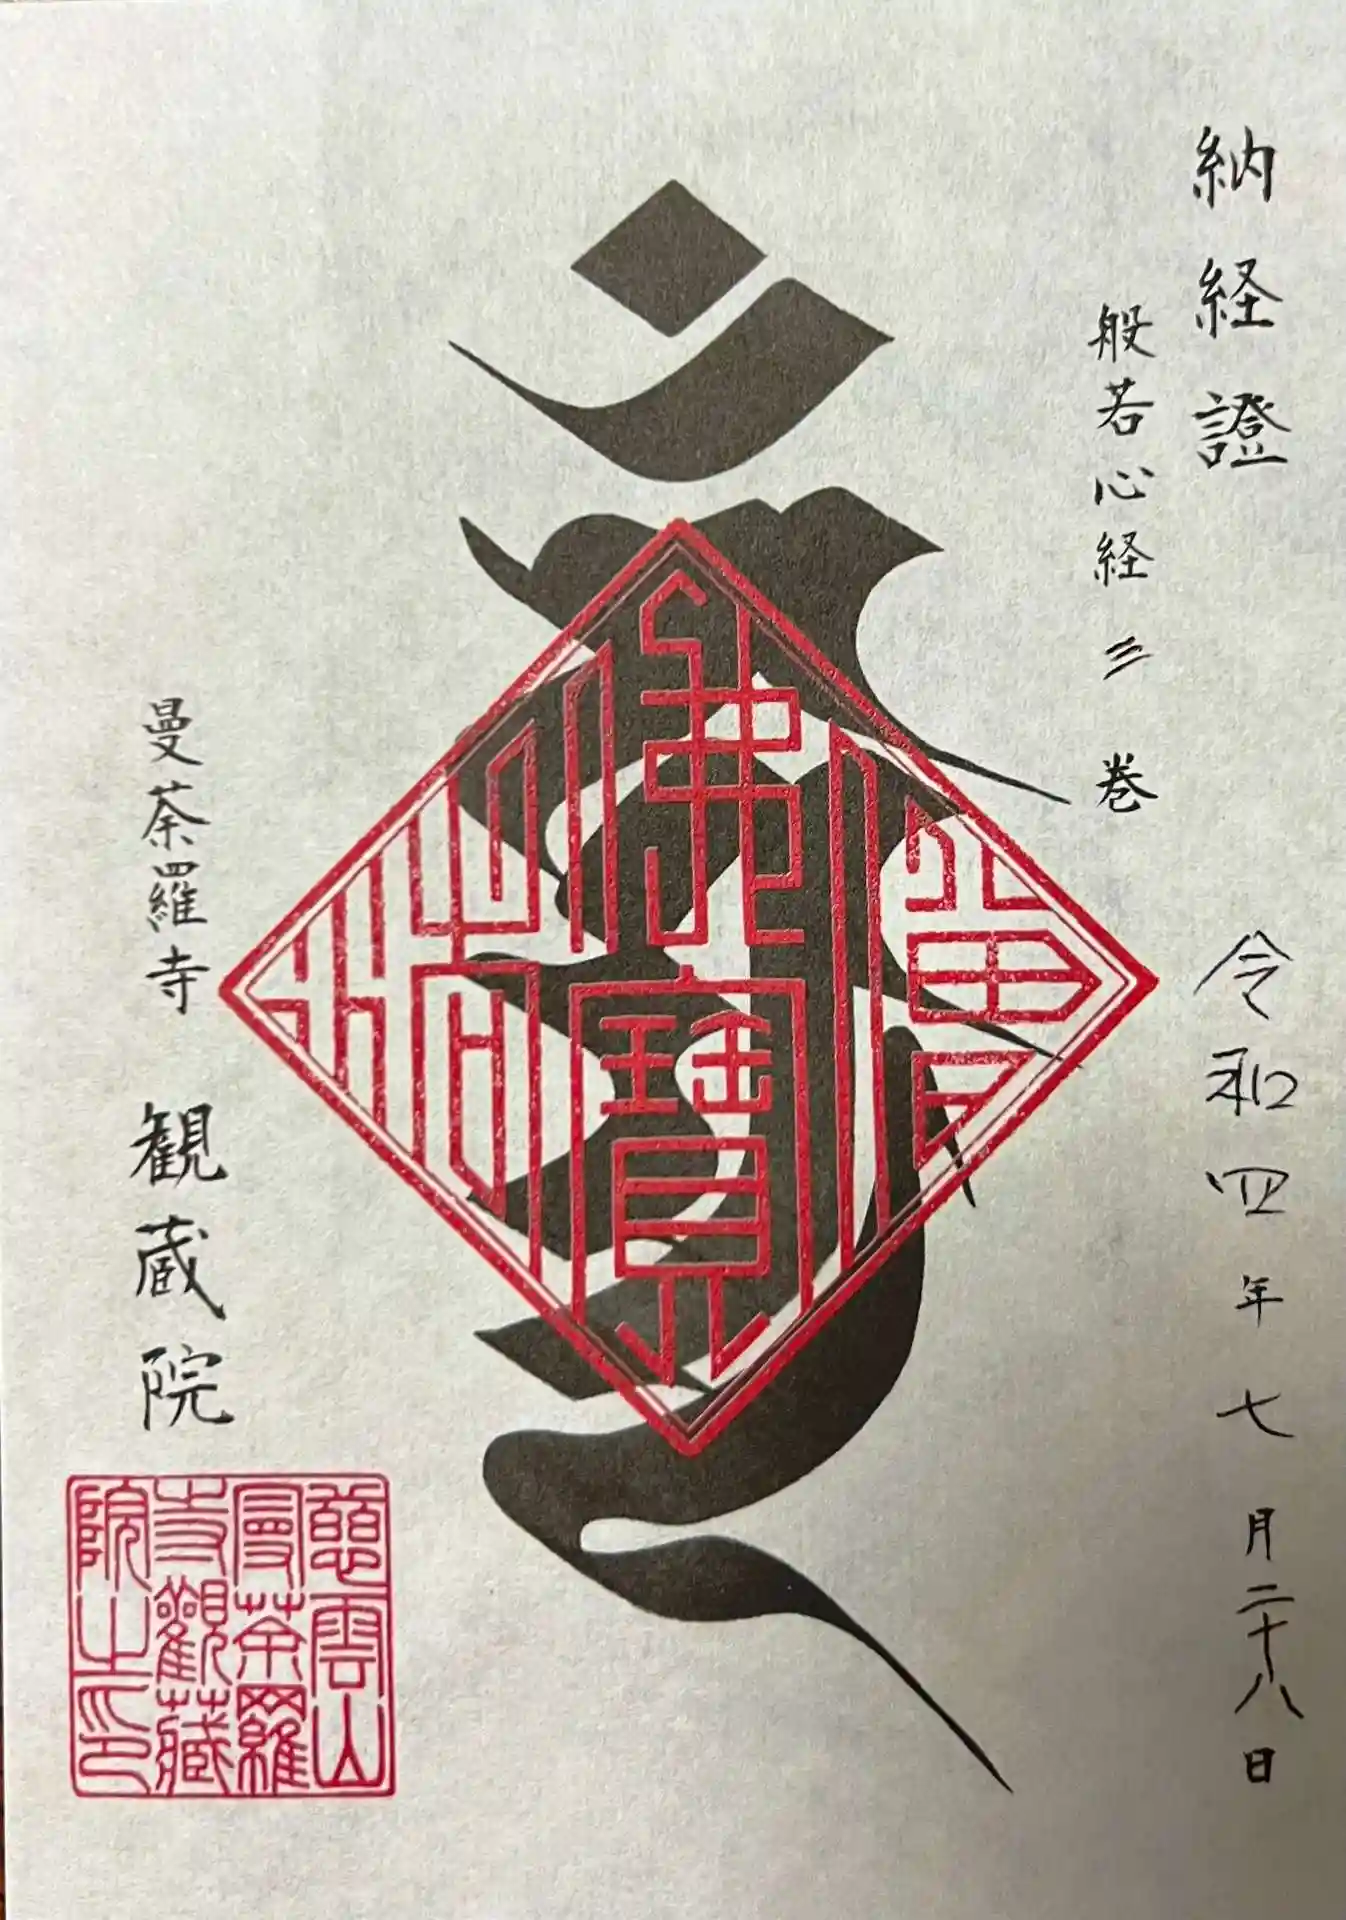 納経證
般若心経三巻
令和四年七月二十八日
佛法僧寶
曼荼羅寺 観蔵院
慈雲山
曼荼羅
寺觀藏
院之印